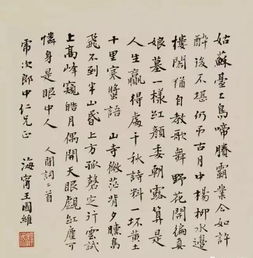 姑蘇臺上烏啼曙賸霸業今如許
醉後不堪仍弔古月中楊柳水邊
樓閣猶自教歌舞 野花開遍真
娘墓一樣紅顏委朝露算是
人生贏得處千秋詩料一抔黃土
十里寒螿語 山寺微茫背夕曛鳥
飛不到半山昏上方孤磬定行雲試
上高峰窺皓月偶開天眼覷紅塵可
憐身是眼中人 人間詞二首
次郎中仁兄正 海寧王國維